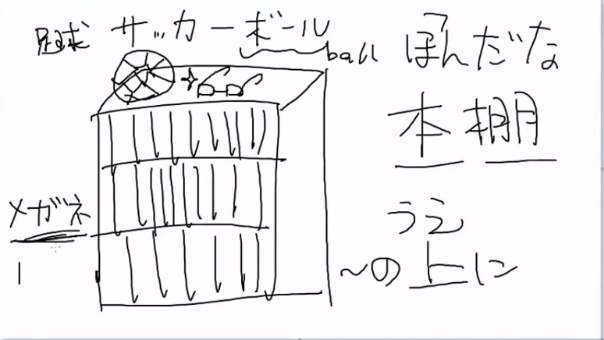 足球 サッカーボール
ball
ほんだな
本棚
メガネ
うえ
〜の上に